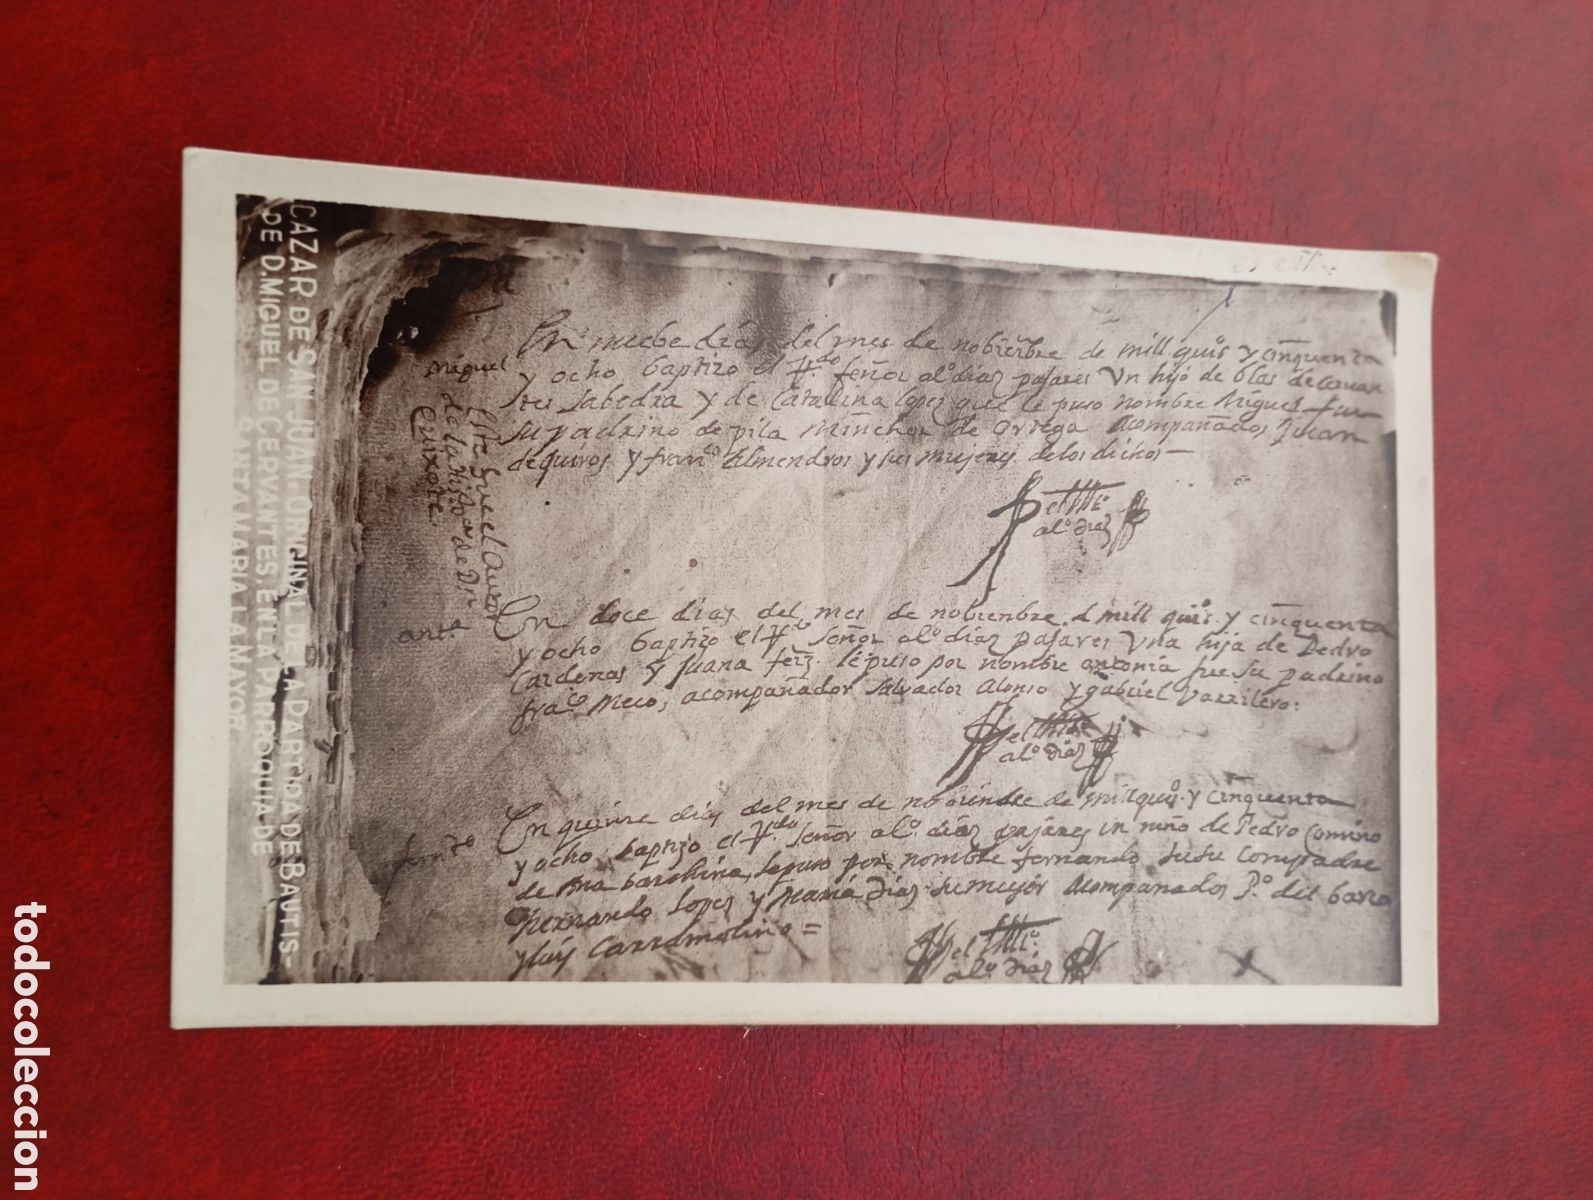 ALCAZAR DE SAN JUAN. ORIGINAL DE LA PARTIDA DE BAUTIS-
DE D. MIGUEL DE CERVANTES. EN LA PARROQUIA DE
SANTA MARIA LA MAYOR
En nuebe días del mes de nobienbre de mill quis y cinquenta
y ocho baptizo el Rdo señor alº diaz pajares Un hijo de blas de Cervan
tes Sabedra y de Catalina lopez que le puso nombre Miguel fue
su padrino de pila Minchor de Ortega Acompañados Juan
de quiros y franco Almendros y sus mujeres de los dichos
Miguel
Este fue el autor
de la Histoª de Dn
Quixote.
el
alº diaz
En doce dias del mes de nobienbre d mill quis. y cinquenta
y ocho baptizo el Rdo señor alº diaz pajares Una hija de Pedro
Cardenas y Juana ferz. le puso por nombre antonia fue su padrino
fraco Meco, acompañador Salvador Alonso y gabriel Varrilero:
antª
el
alº diaz
En quince dias del mes de nobienbre de mill quis. y cinquenta
y ocho baptizo el Rdo señor alº diaz pajares un niño de Pedro Comino
de Ana barchina, le puso por nombre fernando su Compadre
hernando Lopez y Maria Diaz su mujer Acompañados Pº del barco
y luis Carramolino =
ferndo
el
alº diaz
todocoleccion